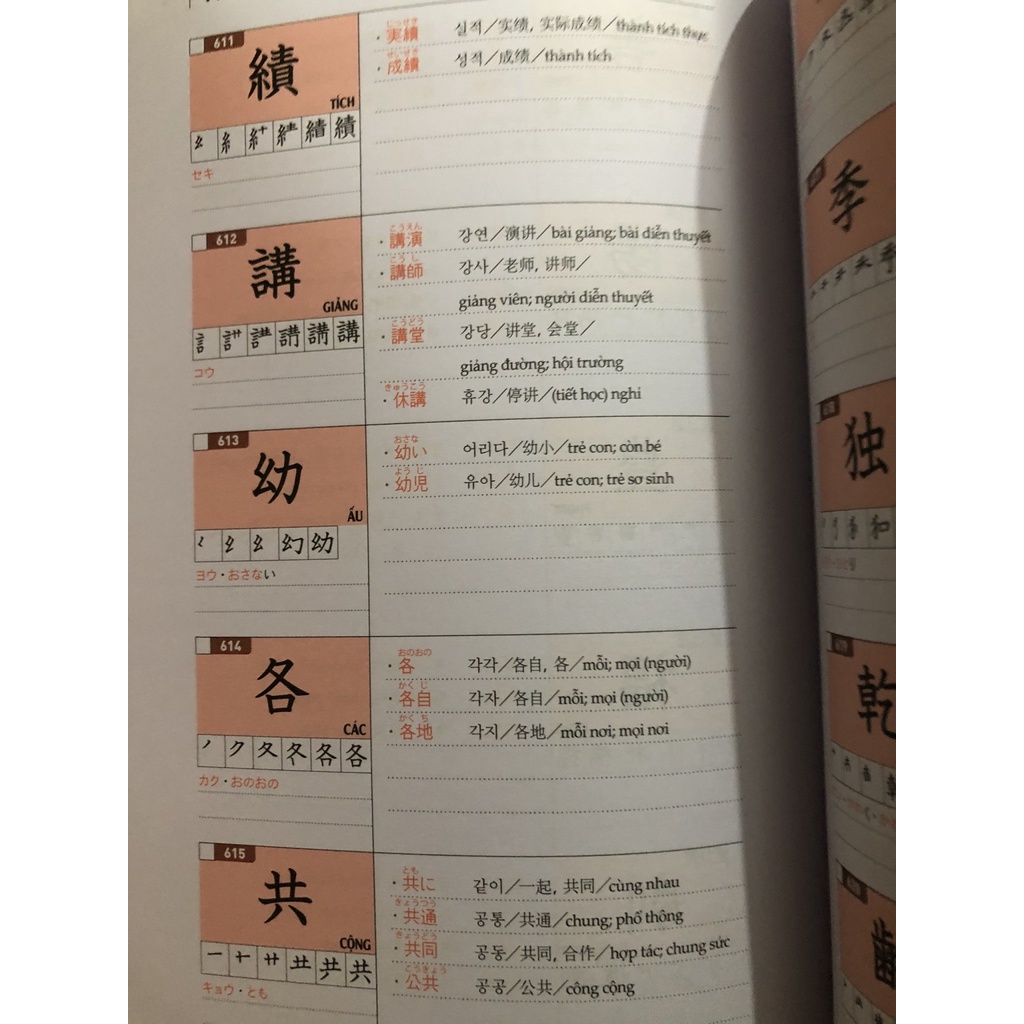 611
績
TÍCH
績
セキ
じっせき
・実績 실적／实绩, 实际成绩／thành tích thực
せいせき
・成績 성적／成绩／thành tích
612
講
GIẢNG
講
コウ
こうえん
・講演 강연／演讲／bài giảng; bài diễn thuyết
こうし
・講師 강사／老师, 讲师／
giảng viên; người diễn thuyết
こうどう
・講堂 강당／讲堂, 会堂／
giảng đường; hội trường
きゅうこう
・休講 휴강／停讲／(tiết học) nghỉ
613
幼
ẤU
幻幼
ヨウ・おさない
おさな
・幼い 어리다／幼小／trẻ con; còn bé
ようじ
・幼児 유아／幼儿／trẻ con; trẻ sơ sinh
614
各
CÁC
ノク夂冬各各
カク・おのおの
おのおの
・各 각각／各自, 各／mỗi; mọi (người)
かくじ
・各自 각자／各自／mỗi; mọi (người)
かくち
・各地 각지／各地／mỗi nơi; mọi nơi
615
共
CỘNG
一十廾共
キョウ・とも
とも
・共に 같이／一起, 共同／cùng nhau
きょうつう
・共通 공통／共通／chung; phổ thông
きょうどう
・共同 공동／共同, 合作／hợp tác; chung sức
こうきょう
・公共 공공／公共／công cộng
季
独
和
乾
歯